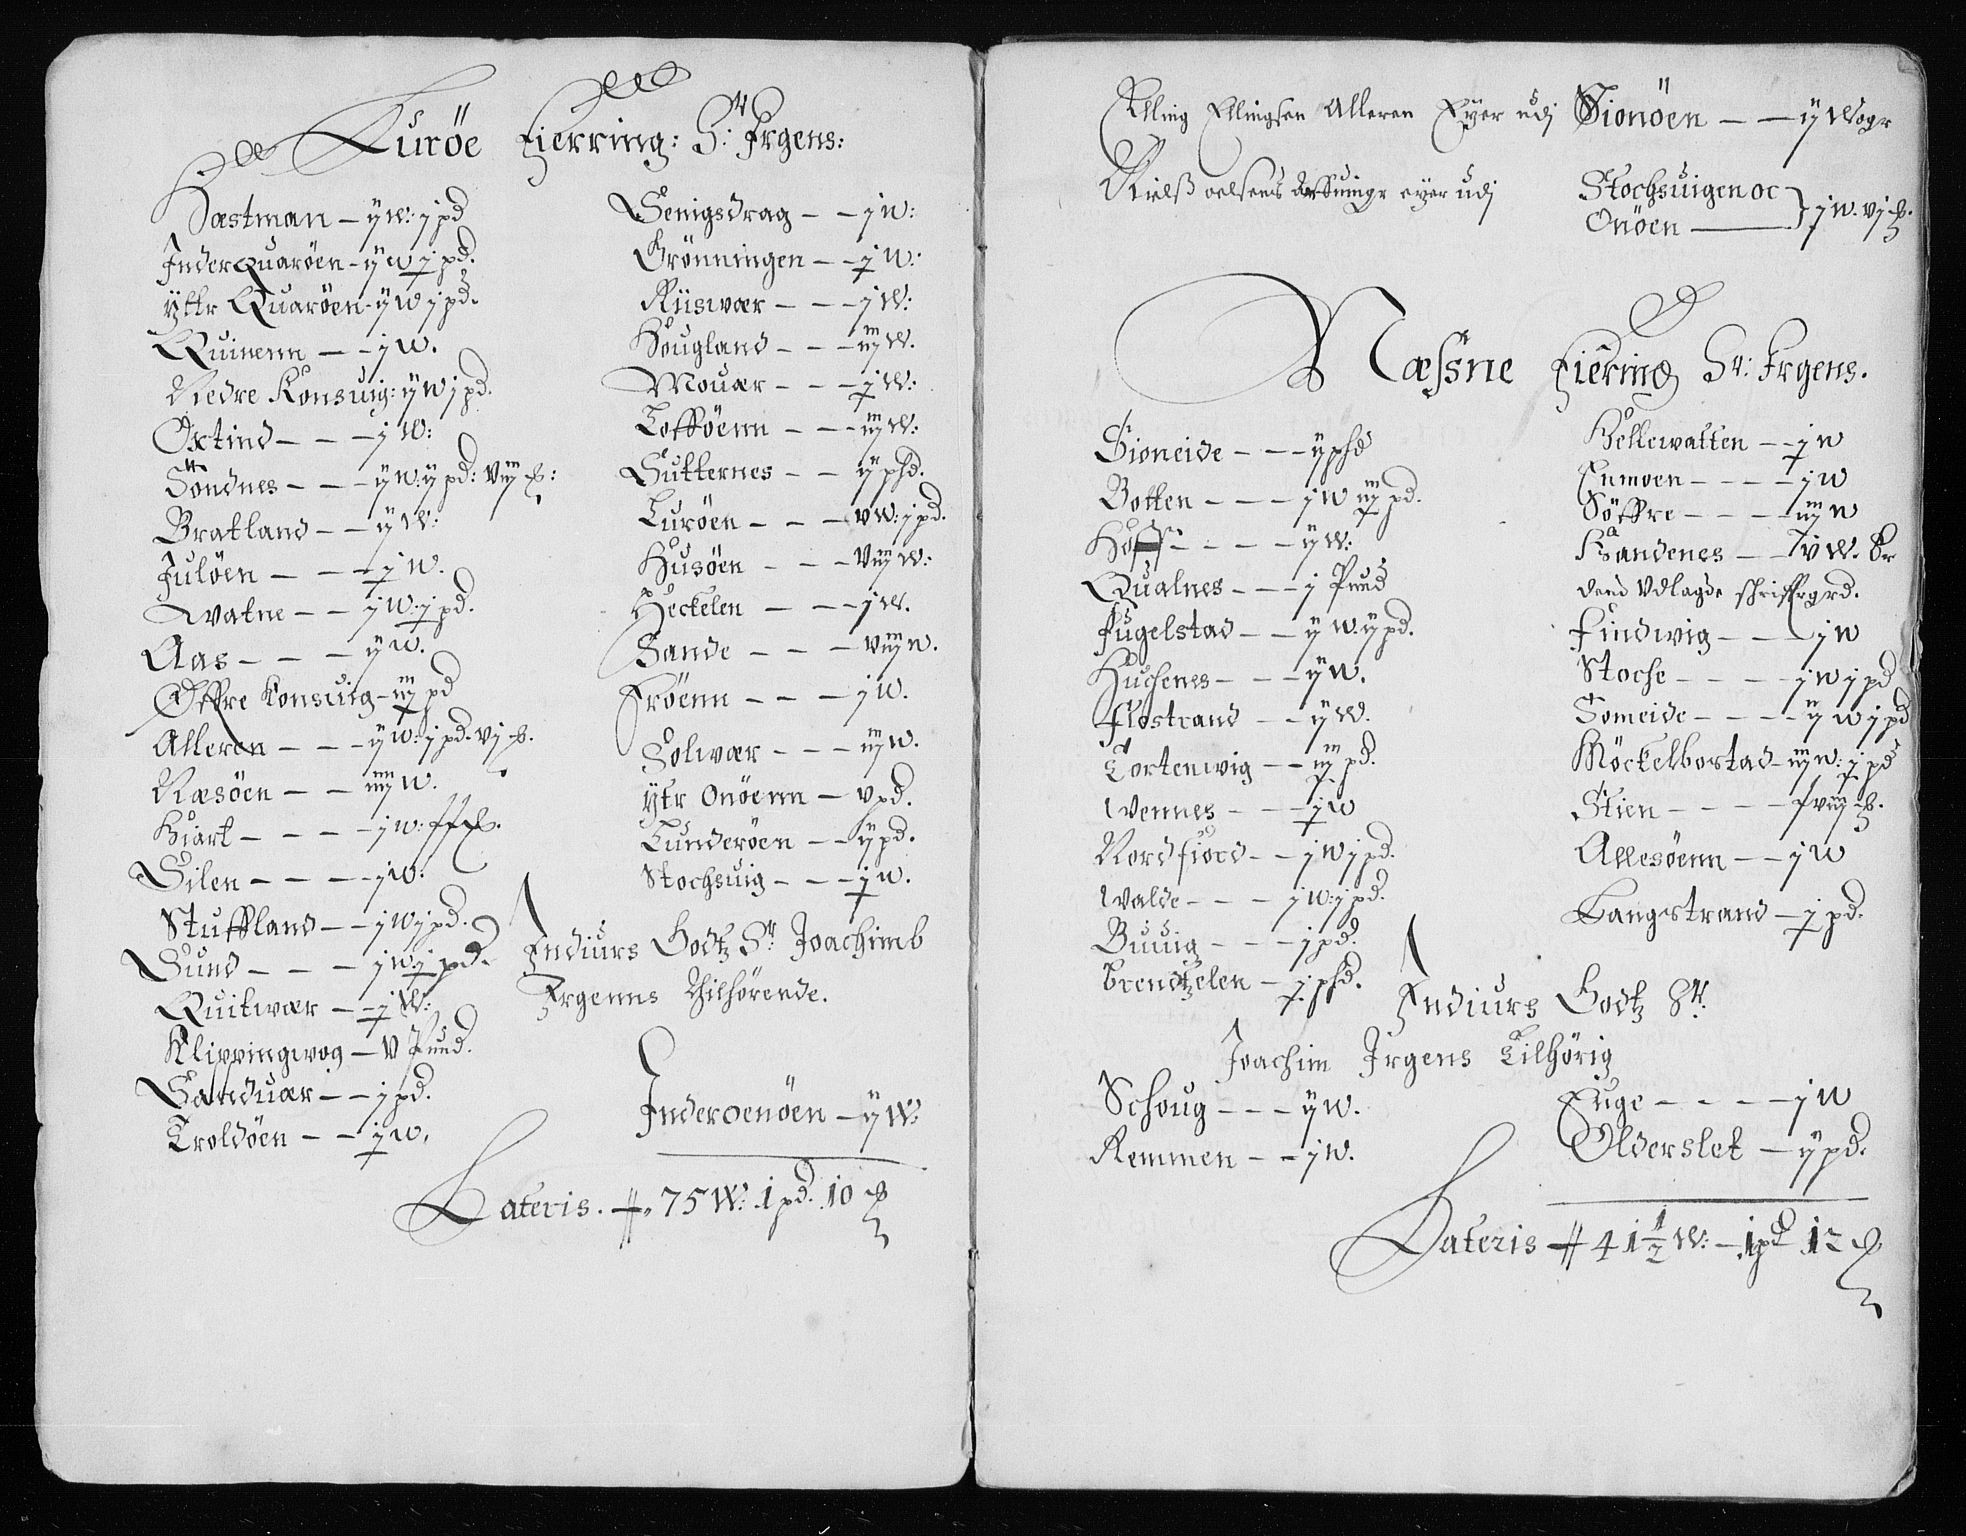 Lurøe Fierring: Sr: Irgens:
Hæstman — ij w: j pd
Inder Quarøen - ij w j pd.
Ytr Quarøen - ij w j pd.
Quinenn — — j w.
Nedre Konsuig: ij w j pd.
Oxtind — — — j w:
Søndnes — — — ij w: ij pd: viij
Bratland — — ij w:
Juløen — — — j w.
Watne — — j w: j pd.
Aas — — — ij w.
Øffre Konsuig — iij pd
Alleren — — — ij w: j pd. vj
Næsøen — — iiij w.
Hiart — — — — j w:
Silen — — — — j w:
Stuffland — — j w j pd.
Sund — — — j w j pd.
Quitwær — — j w:
Klippingwog — v Pund.
Sanduær — — j pd.
Troldøen — — j w.
Senigsdrag — — j w:
Grønningen — — j w:
Riiswær — — — j w:
Hougland — — — iij w.
Mouær — — — j w:
Lofføenn — — — iij w:
Sutternes — — ij phd.
Lurøen — — — v w: j pd.
Husøen — — — viij w:
Heckelen — — — j w.
Sande — — — viij w.
Frøenn — — — j w.
Solwær — — — iij w.
Ytr Onøenn — v pd.
Lunderøen — — ij pd.
Stochsuig — — — j w.
Endiurs Godtz Sr: Joachimb
Irgenns Tilhørende.
Inderoenøen — ij w
Lateris. 75 W: 1 pd. 10
Elling Ellingsen Alleren Eyer udj Sionøen — — ij Wogr
Nielß oelsens eyer udj Stochsuigen oc
Onøen — j w. vj
Næssne Fiering Sr: Irgens.
Sioneide — — — ij phd
Botten — — — j w iij pd.
Hoff — — — — ij w:
Qualnes — — — j Pund
Fugelstad — — ij w. ij pd.
Huchenes — — — ij w.
Flostrand — — ij w.
Tortenwig — — iij pd.
Wennes — — — j w
Nordfiord — — j w j pd.
Walde — — — j w: j pd.
Buuig — — — j pd.
Brendtzelen — j phd.
Hellewatten — — j w
Enmoen — — — — j w
Søffre — — — — iij w
Handenes — iv w. Er
dend Udlagde
Findwig — — — j w
Stoche — — — — j w j pd
Someide — — — — ij w j pd
Möckelbostad — iij w: j pd
Stien — — — — viij
Allesøenn — — j w
Langstrand — j pd.
Endiurs Godtz Sr.
Joachim Irgens Tilhørig
Schoug — — — ij w.
Remmen — — j w.
Euge — — — — j w
Olderslet — ij pd.
Lateris 41 1/2 W: — 1 pd 12